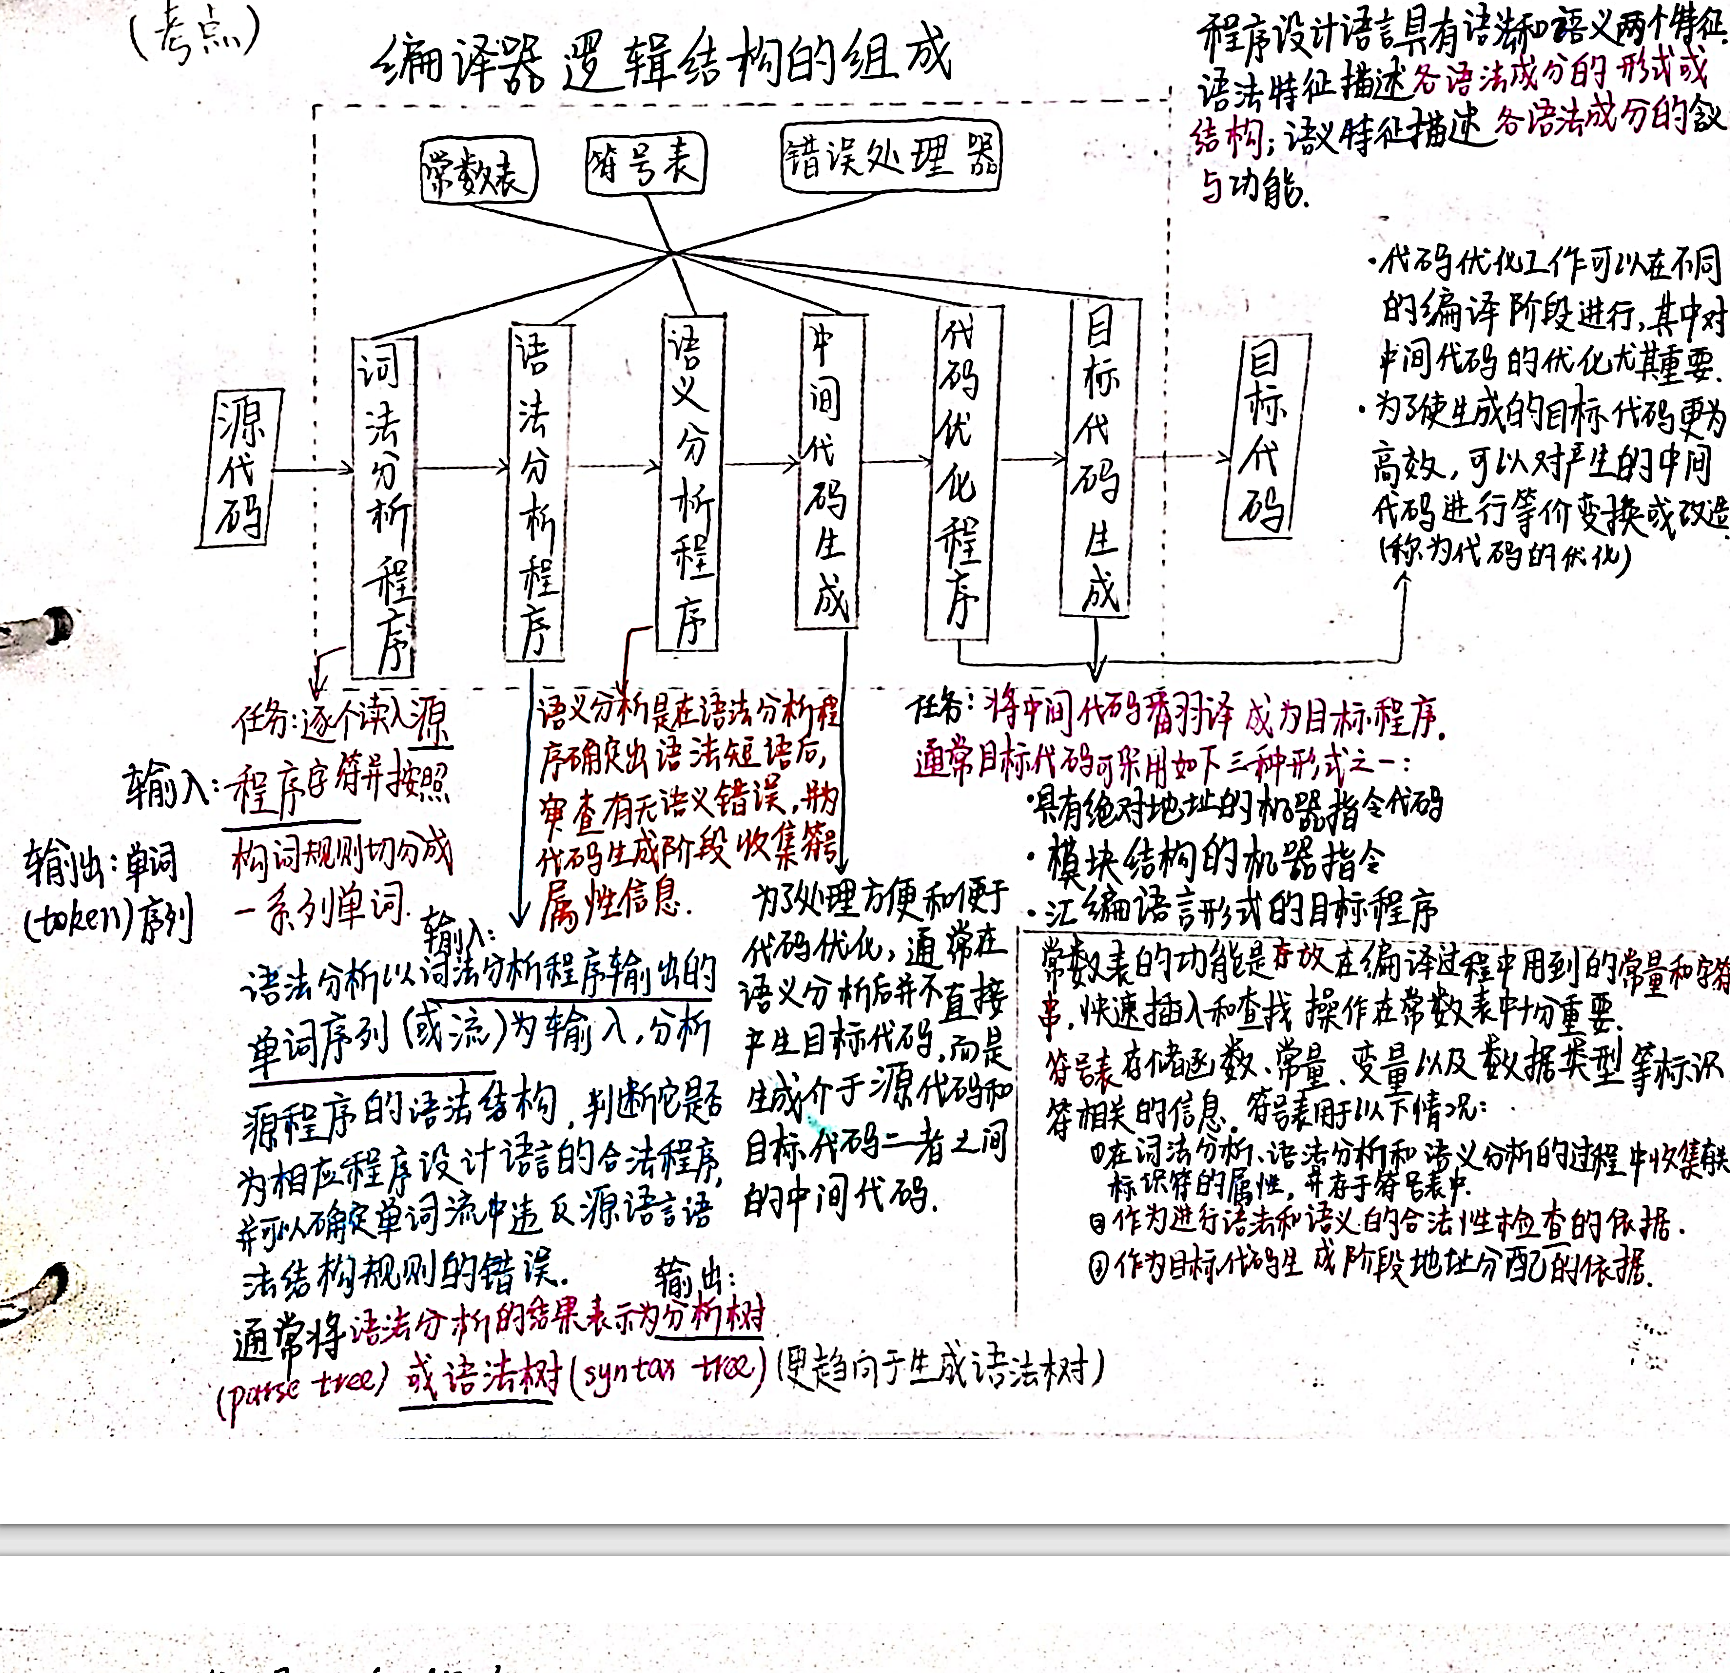 (考点)
编译器逻辑结构的组成
程序设计语言具有语法和语义两个特征.
语法特征描述各语法成分的形式或
结构;语义特征描述各语法成分的含义
与功能.
常数表
符号表
错误处理器
源代码
词法分析程序
语法分析程序
语义分析程序
中间代码生成
代码优化程序
目标代码生成
目标代码
·代码优化工作可以在不同
的编译阶段进行,其中对
中间代码的优化尤其重要.
·为了使生成的目标代码更为
高效,可以对产生的中间
代码进行等价变换或改造
(称为代码的优化)
任务:逐个读入源
输入:程序字符并按照
构词规则切分成
一系列单词.
输出:单词
(token)序列
语义分析是在语法分析程
序确定出语法短语后,
审查有无语义错误,并为
代码生成阶段收集符号
属性信息.
输入:
语法分析以词法分析程序输出的
单词序列(或流)为输入,分析
源程序的语法结构,判断它是否
为相应程序设计语言的合法程序,
并可以确定单词流中违反源语言语
法结构规则的错误.
输出:
通常将语法分析的结果表示为分析树
(parse tree)或语法树(syntax tree)(更趋向于生成语法树)
为了处理方便和便于
代码优化,通常在
语义分析后并不直接
产生目标代码,而是
生成介于源代码和
目标代码二者之间
的中间代码.
任务:将中间代码翻译成为目标程序.
通常目标代码可采用如下三种形式之一:
·具有绝对地址的机器指令代码
·模块结构的机器指令
·汇编语言形式的目标程序
常数表的功能是存放在编译过程中用到的常量和字符
串,快速插入和查找操作在常数表中十分重要.
符号表存储函数、常量、变量以及数据类型等标识
符相关的信息.符号表用于以下情况:
①在词法分析、语法分析和语义分析的过程中收集
标识符的属性,并存于符号表中.
②作为进行语法和语义的合法性检查的依据.
③作为目标代码生成阶段地址分配的依据.